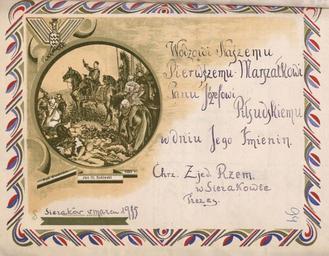 Jan III. Sobieski
Wodzowi Naszemu
Pierwszemu Marszałkowi
Panu Józefowi
Piłsudskiemu
w dniu Jego Imienin.
Chrz. Zjed. Rzem.
w Sierakowie
Sieraków w marcu 1935